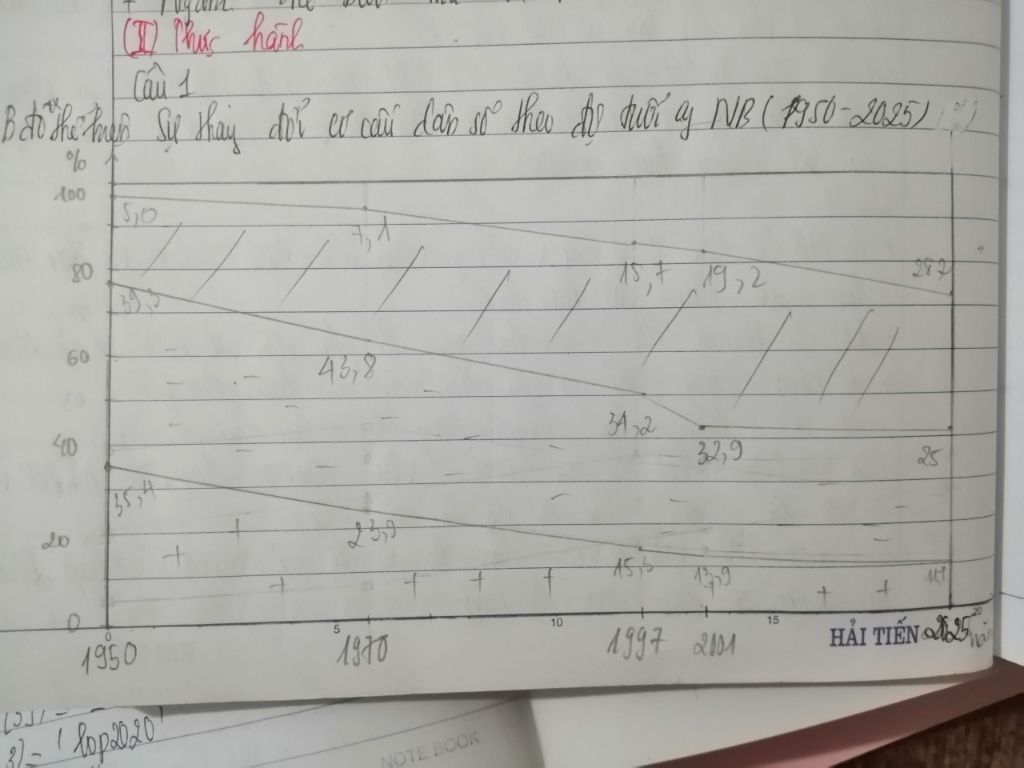 (II) Thực hành
Câu 1
Sự thay đổi cơ cấu dân số theo độ tuổi của NB (1950-2025)
%
100
5,0
7,1
15,7
19,2
28,2
80
39,3
60
43,8
31,2
32,9
25
40
35,4
23,9
20
15,3
13,9
11,7
0
0
5
10
15
20
1950
1970
1997
2001
HẢI TIẾN
2025
năm
lop2020
NOTE BOOK